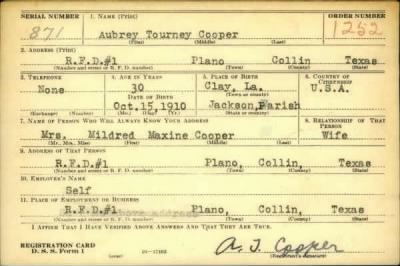 SERIAL NUMBER 1. NAME (Print) ORDER NUMBER
871 Aubrey Tourney Cooper 1252
(First) (Middle) (Last)
2. ADDRESS (Print)
R.F.D.#1 Plano, Collin Texas
(Number and street or R. F. D. number) (Town) (County) (State)
3. TELEPHONE 4. AGE IN YEARS 5. PLACE OF BIRTH 6. COUNTRY OF CITIZENSHIP
None 30 Clay, La. U.S.A.
DATE OF BIRTH (Town or county)
Oct.15,1910 Jackson, Parish
(Exchange) (Number) (Mo.) (Day) (Yr.) (State or country)
7. NAME OF PERSON WHO WILL ALWAYS KNOW YOUR ADDRESS 8. RELATIONSHIP OF THAT PERSON
Mrs. Mildred Maxine Cooper Wife
(Mr., Mrs., Miss) (First) (Middle) (Last)
9. ADDRESS OF THAT PERSON
R.F.D.#1 Plano, Collin, Texas
(Number and street or R. F. D. number) (Town) (County) (State)
10. EMPLOYER'S NAME
Self
11. PLACE OF EMPLOYMENT OR BUSINESS
R.F.D.#1 Plano, Collin, Texas
(Number and street or R. F. D. number) (Town) (County) (State)
I AFFIRM THAT I HAVE VERIFIED ABOVE ANSWERS AND THAT THEY ARE TRUE.
REGISTRATION CARD
D. S. S. Form 1 (over) A. T. Cooper
(Registrant's signature)